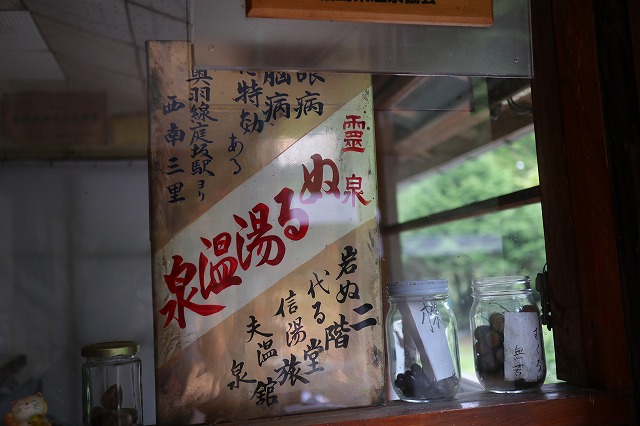 眼病
脳病
に特効
ある
奥羽線庭坂駅ヨリ
西南三里
靈泉
ぬる湯温泉
岩代信夫
ぬる湯温泉
二階堂旅館